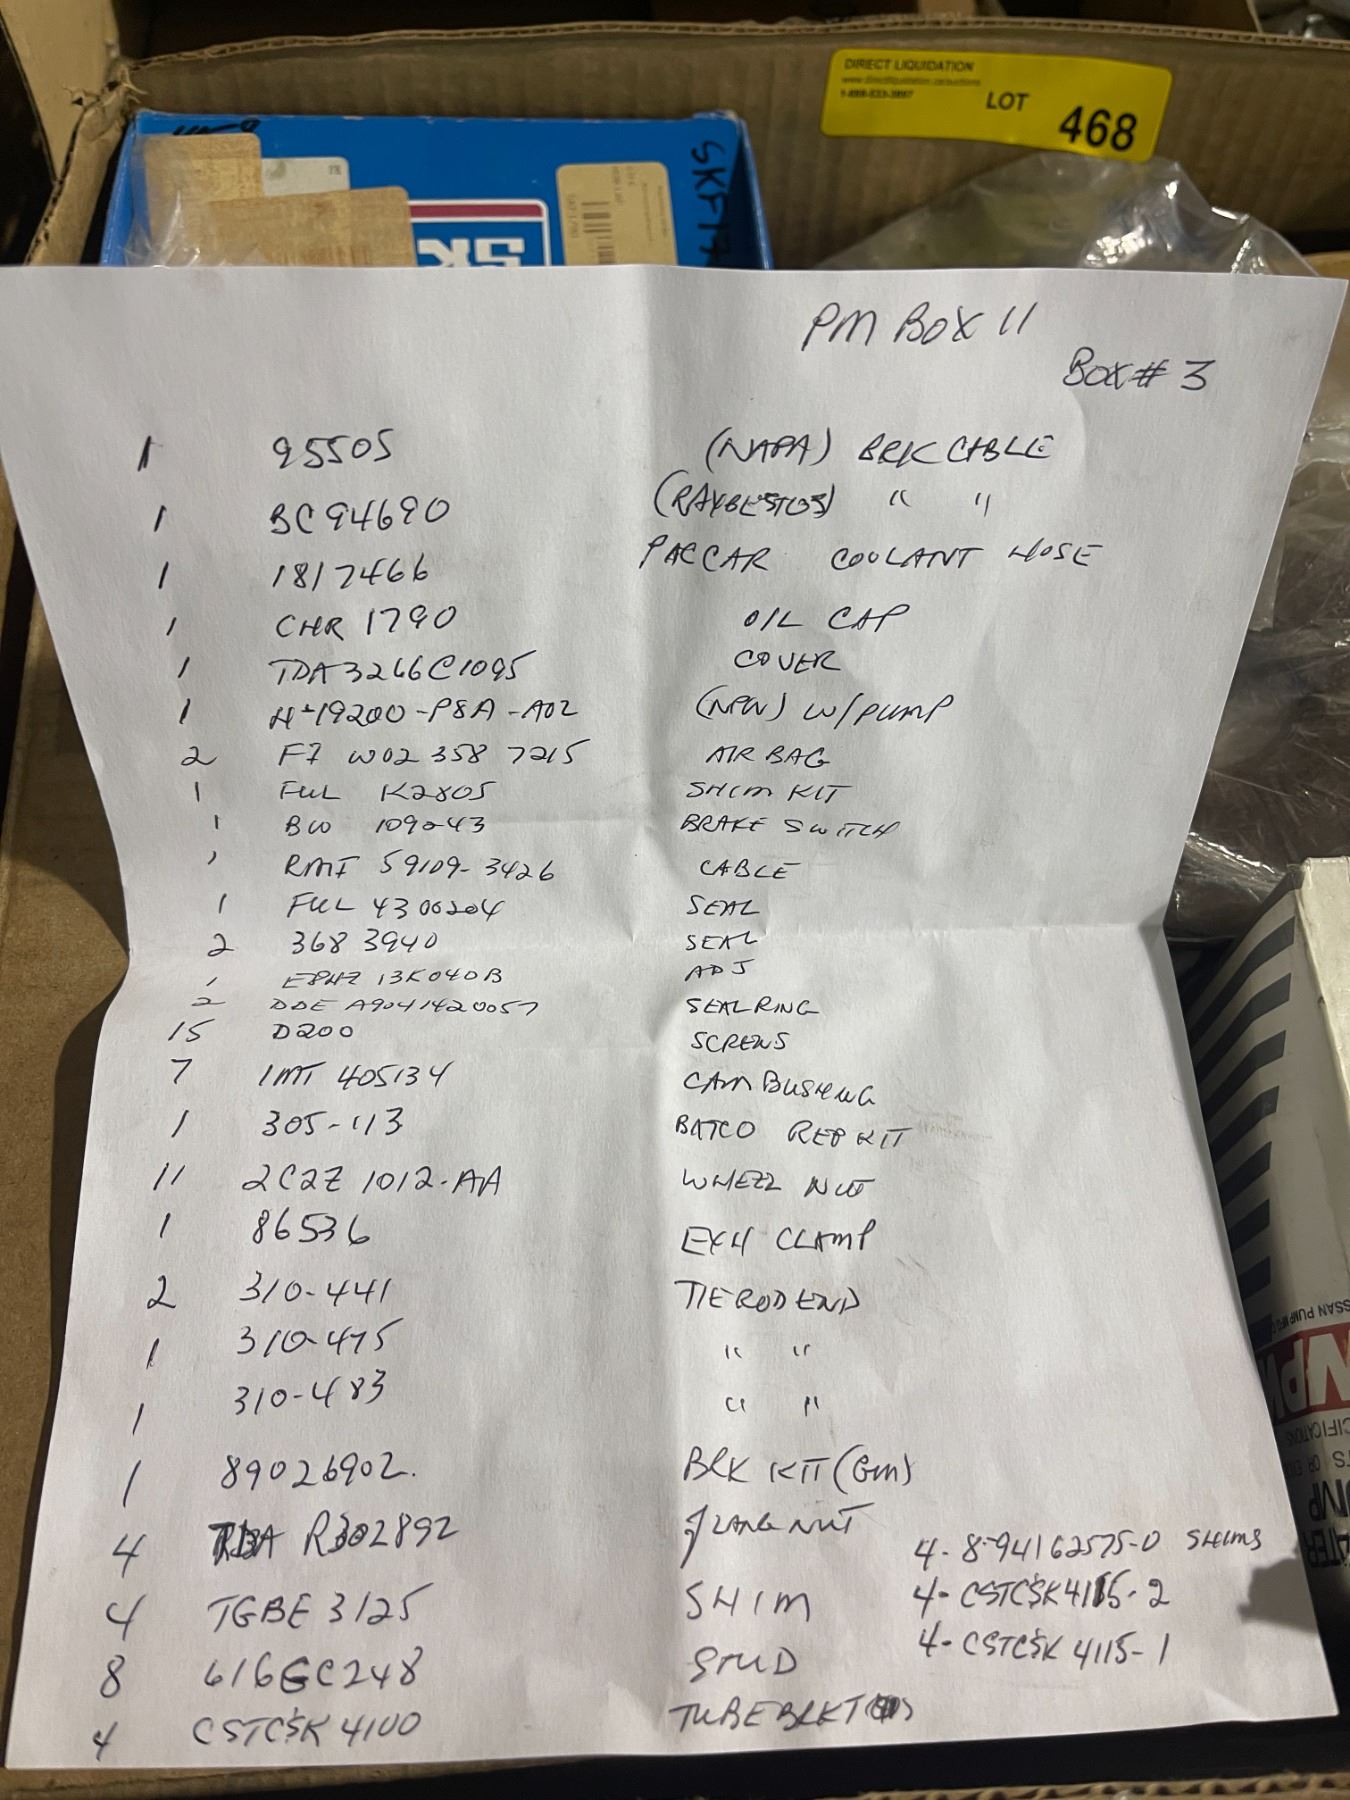 DIRECT LIQUIDATION
LOT 468
SKF
PM BOX 11
BOX # 3
1 95505 (NAPA) BRK CABLE
1 BC94690 (RAYBESTOS) " "
1 1817466 PACCAR COOLANT HOSE
1 CHR 1790 OIL CAP
1 TDA3266C1095 COVER
1 19200-P8A-A02 (NPW) W/PUMP
2 W02 358 7215 AIR BAG
1 FUL K2805 SHIM KIT
1 BW 109243 BRAKE SWITCH
RMI 59109-3426 CABLE
1 FUL 4300204 SEAL
2 368 3940 SEAL
1 13K040B ADJ
2 DDE A9041420057 SEAL RING
15 D200 SCREWS
7 1MT 405134 CAM BUSHING
1 305-113 BATCO REP KIT
11 2C2Z 1012-AA WHEEL NUT
1 86536 EXH CLAMP
2 310-441 TIE ROD END
1 310-475 " "
1 310-483 " "
1 89026902. BRK KIT (GM)
4 R302892 FLANG NUT
4 TGBE 3125 SHIM
8 616GC248 STUD
4 CSTCSK 4100 TUBE BRKT
4-8-94162575-0 SHIMS
4-CSTCSK4115-2
4-CSTCSK 4115-1
NPW